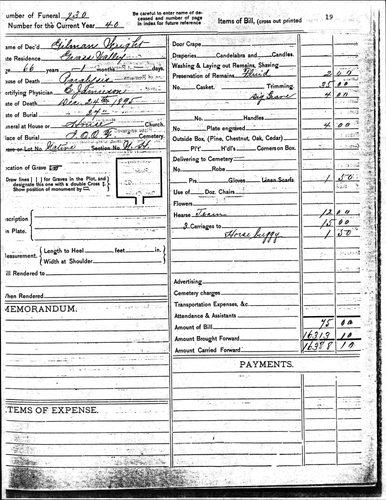 umber of Funeral 230
Number for the Current Year 40
Be careful to enter name of deceased and number of page in index for future reference.
Items of Bill, (cross out printed
19
ame of Dec'd Gilman Wright
ate Residence Grass Valley
ge 66 years months days.
use of Death Paralysis
ertifying Physician C. Jones
ate of Death Dec. 24th 1895
ate of Burial 24th
uneral at House or Church.
lace of Burial I.O.O.F. Cemetery.
or Lot No. Section No.
ocation of Grave
Draw lines | | for Graves in the Plot, and
designate this one with a double Cross
Show position of monument by
escription
n Plate.
easurement. Length to Heel feet in.
Width at Shoulder
ill Rendered to
hen Rendered
MEMORANDUM.
TEMS OF EXPENSE.
Door Crape
Draperies, Candelabra and Candles.
Washing & Laying out Remains, Shaving
Preservation of Remains Fluid 2 00
No. Casket. Trimming. 35 00
Dig Grave 4 00
No. Handles
Plate engraved 4 00
Outside Box, (Pine, Chestnut, Oak, Cedar)
P'l'y H'dl's Corners on Box.
Delivering to Cemetery
No. Robe
Pr. Gloves Linen Scarfs 1 50
Use of Doz. Chairs
Flowers
Hearse Team 12 00
3 Carriages to 15 00
Horse buggy 1 50
Advertising
Cemetery charges
Transportation Expenses, &c
Attendance & Assistants
Amount of Bill 75 00
Amount Brought Forward 16313 10
Amount Carried Forward 16388 10
PAYMENTS.